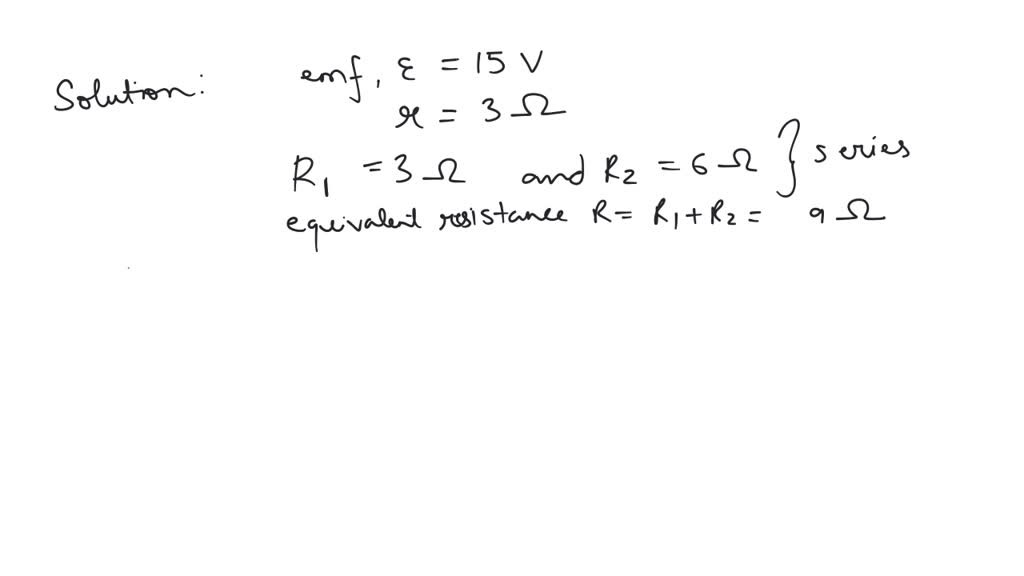 Solution: emf, ε = 15 V
r = 3 Ω
R₁ = 3 Ω and R₂ = 6 Ω } series
equivalent resistance R = R₁ + R₂ = 9 Ω